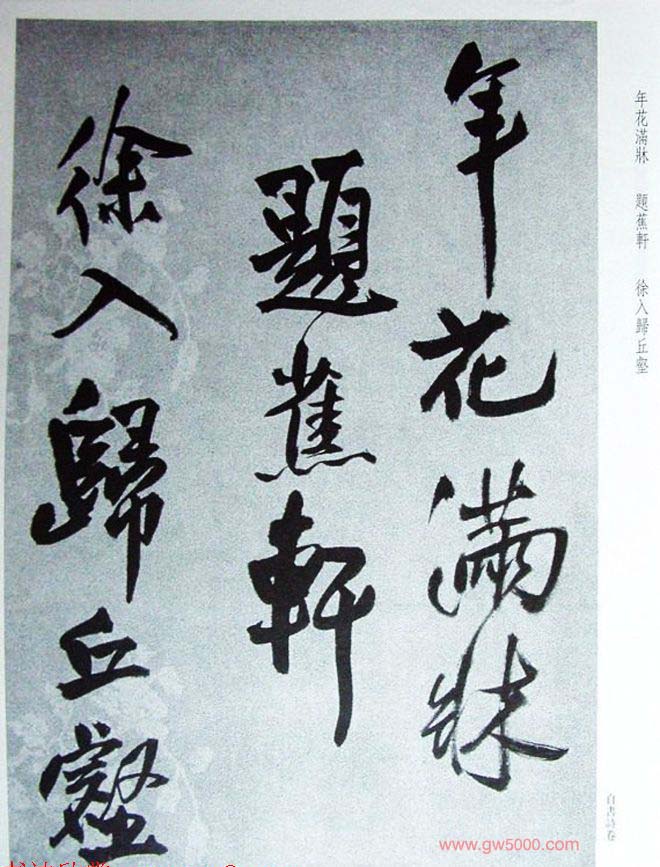 年花滿牀
題蕉軒
徐入歸丘壑
年花滿牀　題蕉軒　徐入歸丘壑
自書詩卷
www.gw5000.com